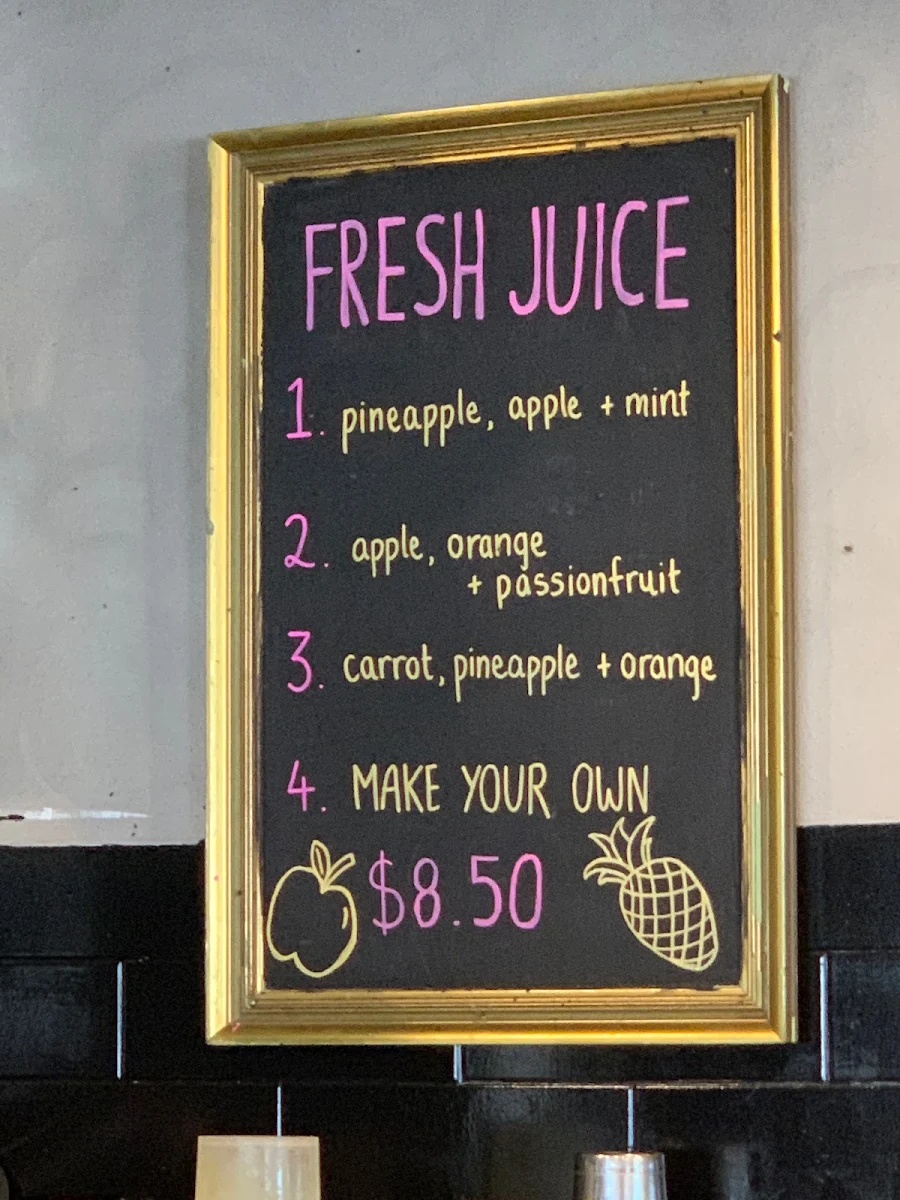 FRESH JUICE
1. pineapple, apple + mint
2. apple, orange
+ passionfruit
3. carrot, pineapple + orange
4. MAKE YOUR OWN
$8.50